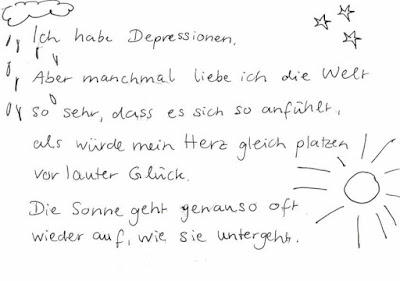 Ich habe Depressionen.
Aber manchmal liebe ich die Welt
so sehr, dass es sich so anfühlt,
als würde mein Herz gleich platzen
vor lauter Glück.
Die Sonne geht genauso oft
wieder auf, wie sie untergeht.